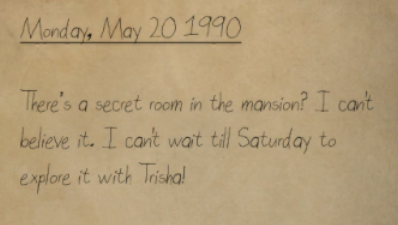 Monday, May 20 1990
There's a secret room in the mansion? I can't
believe it. I can't wait till Saturday to
explore it with Trisha!